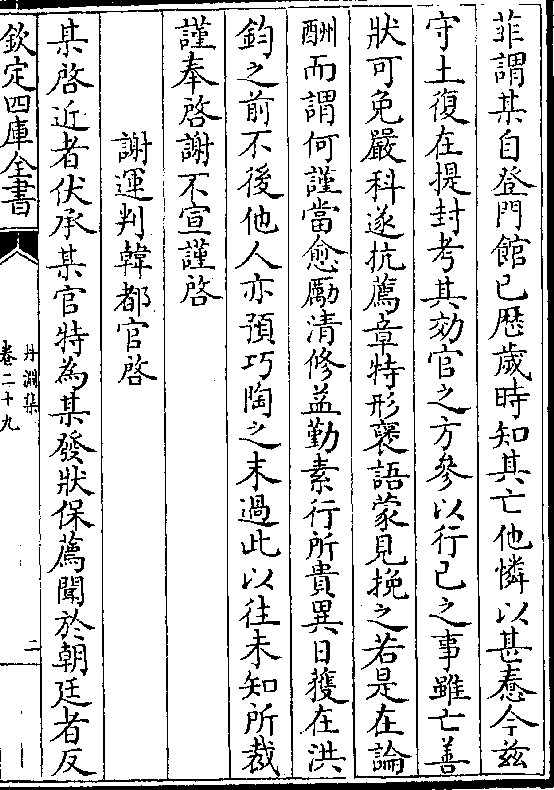 菲謂某自登門館已歴歲時知其亡他憐以甚惷今兹
守土復在提封考其効官之方參以行已之事雖亡善
狀可免嚴科遂抗薦章特形襃語蒙見挽之若是在論
酬而謂何謹當愈勵清修益勤素行所貴異日獲在洪
鈞之前不後他人亦預巧陶之末過此以往未知所裁
謹奉啓謝不宣謹啓
謝運判韓都官啓
某啓近者伏承某官特為某發狀保薦聞於朝廷者反
欽定四庫全書
丹淵集
卷二十九
二